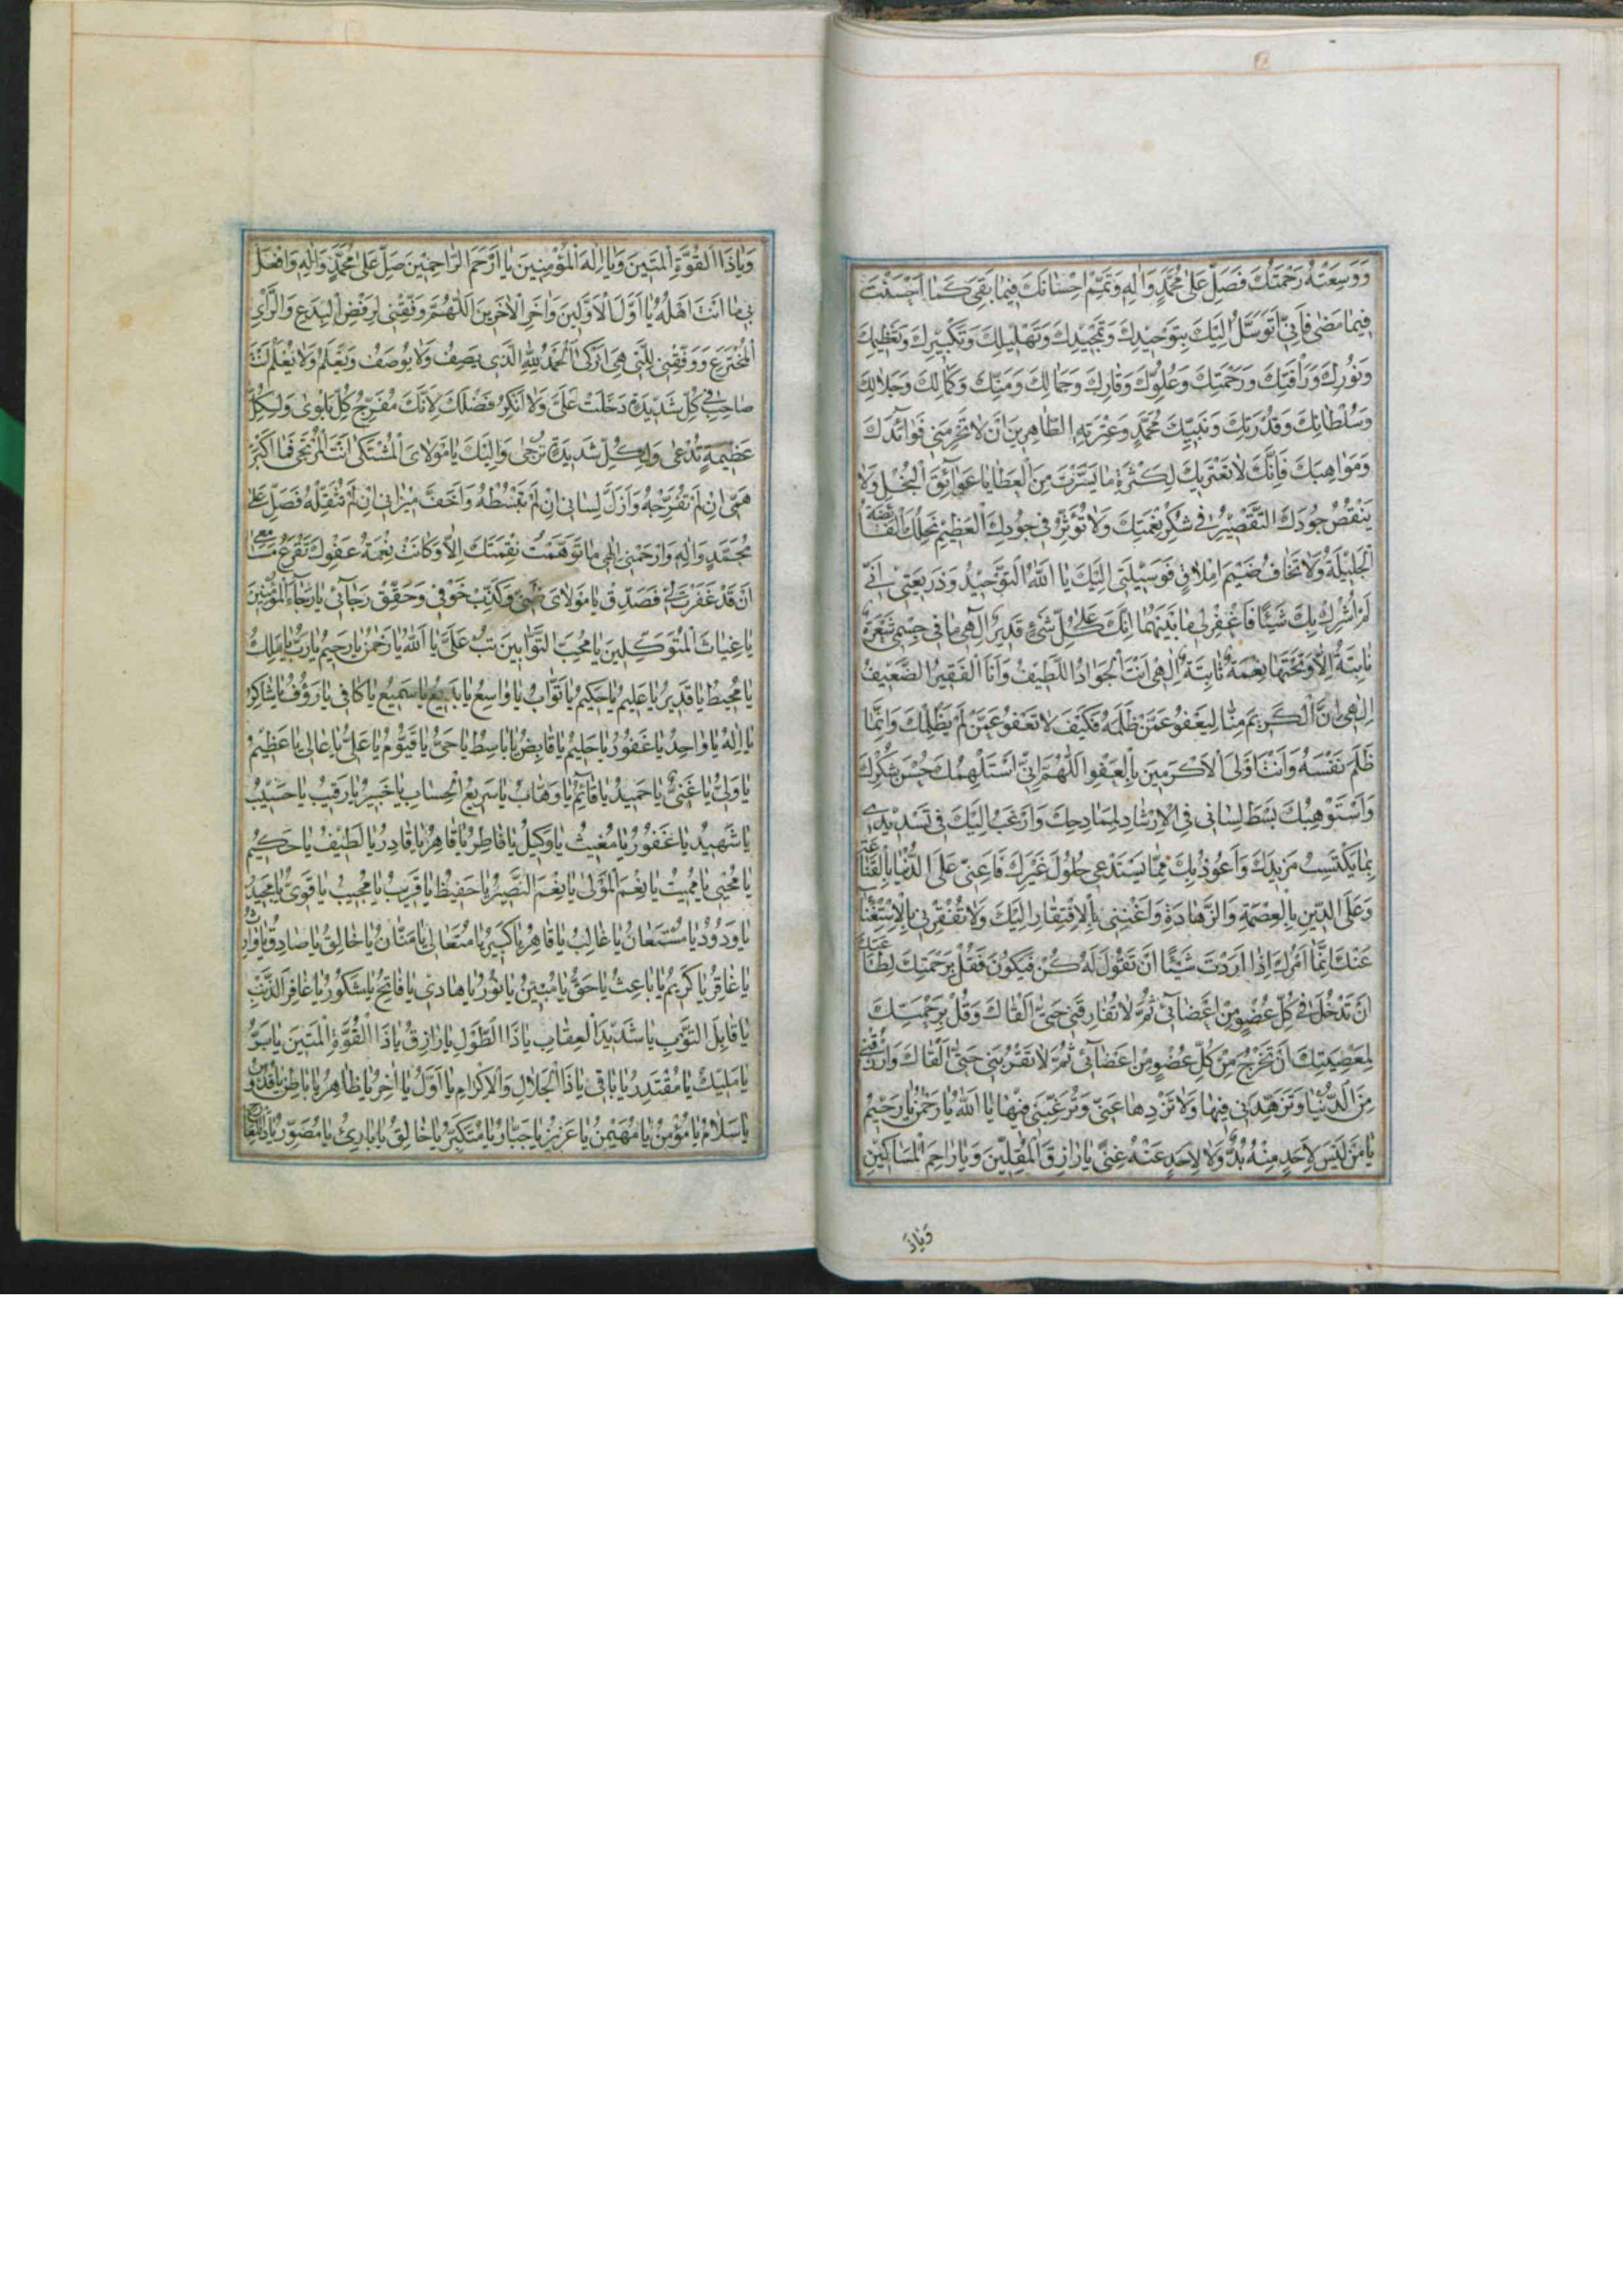 وَوَسِعَتْهُ رَحْمَتُكَ فَصَلِّ عَلىٰ مُحَمَّدٍ وَالِهِ وَتَمِّمْ اِحْسٰانَكَ فِيمٰا بَقِىَ كَمٰا اَحْسَنْتَ
فِيمٰا مَضىٰ فَاِنّى اَتَوَسَّلُ اِلَيْكَ بِتَوْحِيدِكَ وَتَمْجِيدِكَ وَتَهْلِيلِكَ وَتَكْبِيرِكَ وَتَعْظِيمِكَ
وَنُورِكَ وَرَأْفَتِكَ وَرَحْمَتِكَ وَعُلُوِّكَ وَوَقٰارِكَ وَجَمٰالِكَ وَمَنِّكَ وَكَمٰالِكَ وَجَلٰالِكَ
وَسُلْطٰانِكَ وَقُدْرَتِكَ وَنَبِيِّكَ مُحَمَّدٍ وَعِتْرَتِهِ الطّٰاهِرِينَ اَنْ لٰا تَحْرِمَنِى فَوٰائِدَكَ
وَمَوٰاهِبَكَ فَاِنَّكَ لٰا تَعْتَرِيكَ لِكَثْرَةِ مٰا يَسَّرْتَ مِنَ الْعَطٰايٰا عَوٰائِقُ الْبُخْلِ وَلٰا
يَنْقُصُ جُودَكَ التَّقْصِيرُ فِى شُكْرِ نِعْمَتِكَ وَلٰا تُؤَثِّرُ فِى جُودِكَ الْعَظِيمِ نِحَلُكَ الْفٰائِضَةُ
الْجَلِيلَةُ وَلٰا تَخٰافُ ضَيْمَ اِمْلٰاقٍ فَوَسِيلَتِى اِلَيْكَ يٰا اَللهُ التَّوْحِيدُ وَذَرِيعَتِى اَنِّى
لَمْ اُشْرِكْ بِكَ شَيْئًا فَاغْفِرْ لِى مٰا بَيْنَهُمٰا اِنَّكَ عَلىٰ كُلِّ شَىْءٍ قَدِيرٌ اِلٰهِى مٰا فِى جِسْمِى شَعْرَةٌ
نٰابِتَةٌ اِلّٰا وَتَحْتَهٰا نِعْمَةٌ ثٰابِتَةٌ اِلٰهِى اَنْتَ الْجَوٰادُ اللَّطِيفُ وَاَنَا الْفَقِيرُ الضَّعِيفُ
اِلٰهِى اِنَّ الْكَرِيمَ مِنّٰا لِيَعْفُو عَمَّنْ ظَلَمَهُ فَكَيْفَ لٰا تَعْفُو عَمَّنْ لَمْ يَظْلِمْكَ وَاِنَّمٰا
ظَلَمَ نَفْسَهُ وَاَنْتَ اَوْلَى الْاَكْرَمِينَ بِالْعَفْوِ اَللّٰهُمَّ اِنِّى اَسْتَلْهِمُكَ حُسْنَ شُكْرِكَ
وَاَسْتَوْهِبُكَ بَسْطَ لِسٰانِى فِى الْاِرْشٰادِ لِمَمٰادِحِكَ وَاَرْغَبُ اِلَيْكَ فِى تَسْدِيدِى
بِمٰا يَكْتَسِبُ مَزِيدَكَ وَاَعُوذُ بِكَ مِمّٰا يَسْتَدْعِى حُلُولَ غَيْرِكَ فَاَعِنِّى عَلَى الدُّنْيٰا بِالْقَنٰاعَةِ
وَعَلَى الدِّينِ بِالْعِصْمَةِ وَالزَّهٰادَةِ وَاَغْنِنِى بِالْاِفْتِقٰارِ اِلَيْكَ وَلٰا تُفْقِرْنِى بِالْاِسْتِغْنٰاءِ
عَنْكَ اِنَّمٰا اَمْرُكَ اِذٰا اَرَدْتَ شَيْئًا اَنْ تَقُولَ لَهُ كُنْ فَيَكُونَ فَقُلْ بِرَحْمَتِكَ لِطٰاعَتِكَ
اَنْ تَدْخُلَ فِى كُلِّ عُضْوٍ مِنْ اَعْضٰائِى ثُمَّ لٰا تُفٰارِقَنِى حَتّٰى اَلْقٰاكَ وَقُلْ بِرَحْمَتِكَ
لِمَعْصِيَتِكَ اَنْ تَخْرُجَ مِنْ كُلِّ عُضْوٍ مِنْ اَعْضٰائِى ثُمَّ لٰا تَقْرَبَنِى حَتّٰى اَلْقٰاكَ وَارْزُقْنِى
مِنَ الدُّنْيٰا وَتُزَهِّدَنِى فِيهٰا وَلٰا تَزْوِهٰا عَنِّى وَتُرَغِّبَنِى فِيهٰا يٰا اَللهُ يٰا رَحْمٰنُ يٰا رَحِيمُ
يٰا مَنْ لَيْسَ لِاَحَدٍ مِنْهُ بُدٌّ وَلٰا لِاَحَدٍ عَنْهُ غِنًى يٰا رٰازِقَ الْمُقِلِّينَ وَيٰا رٰاحِمَ الْمَسٰاكِينِ
وَيٰاذَ
وَيٰا ذَا الْقُوَّةِ الْمَتِينَ وَيٰا اِلٰهَ الْمُؤْمِنِينَ يٰا اَرْحَمَ الرّٰاحِمِينَ صَلِّ عَلىٰ مُحَمَّدٍ وَالِهِ وَافْعَلْ
بِى مٰا اَنْتَ اَهْلُهُ يٰا اَوَّلَ الْاَوَّلِينَ وَاٰخِرَ الْاٰخِرِينَ اَللّٰهُمَّ وَفِّقْنِى لِرَفْضِ الْبِدَعِ وَالرَّأْىِ
الْمُخْتَرَعِ وَوَفِّقْنِى لِلَّتِى هِىَ اَزْكىٰ اَلْحَمْدُ لِلّٰهِ الَّذِى يَصِفُ وَلٰا يُوصَفُ وَيَعْلَمُ وَلٰا يُعْلَمُ اَنْتَ
صٰاحِبِى فِى كُلِّ شَدِيدَةٍ دَخَلَتْ عَلَىَّ وَلٰا اُنْكِرُ فَضْلَكَ لِاَنَّكَ مُفَرِّجُ كُلِّ بَلْوىٰ وَلِكُلِّ
عَظِيمَةٍ تُدْعىٰ وَلِكُلِّ شَدِيدَةٍ تُرْجىٰ وَاِلَيْكَ يٰا مَوْلٰاىَ الْمُشْتَكىٰ اَنْتَ الْمُرْتَجىٰ فَمٰا اَكْبَرَ
هَمِّى اِنْ لَمْ تُفَرِّجْهُ وَاَزَلَّ لِسٰانِى اِنْ لَمْ تَبْسُطْهُ وَاَخَفَّ مِيزٰانِى اِنْ لَمْ تُثَقِّلْهُ فَصَلِّ عَلىٰ
مُحَمَّدٍ وَالِهِ وَارْحَمْنِى اِلٰهِى مٰا تَوَهَّمْتُ نِقْمَتَكَ اِلّٰا وَكٰانَتْ نِعْمَةُ عَفْوِكَ تَقْرَعُ مَسٰامِعِى
اَنْ قَدْ غَفَرْتُ لَكَ فَصَدِّقْ يٰا مَوْلٰاىَ ظَنِّى وَكَذِّبْ خَوْفِى وَحَقِّقْ رَجٰائِى يٰا رَجٰاءَ الْمُؤْمِنِينَ
يٰا غِيٰاثَ الْمُتَوَكِّلِينَ يٰا مُحِبَّ التَّوّٰابِينَ تُبْ عَلَىَّ يٰا اَللهُ يٰا رَحْمٰنُ يٰا رَحِيمُ يٰا رَبُّ يٰا مَلِكُ
يٰا مُحِيطُ يٰا قَدِيرُ يٰا عَلِيمُ يٰا حَكِيمُ يٰا تَوّٰابُ يٰا وٰاسِعُ يٰا بَدِيعُ يٰا سَمِيعُ يٰا كٰافِى يٰا رَؤُفُ يٰا شٰاكِرُ
يٰا اِلٰهُ يٰا وٰاحِدُ يٰا غَفُورُ يٰا حَلِيمُ يٰا قٰابِضُ يٰا بٰاسِطُ يٰا حَىُّ يٰا قَيُّومُ يٰا عَلِىُّ يٰا عٰالِى يٰا عَظِيمُ
يٰا وَلِىُّ يٰا غَنِىُّ يٰا حَمِيدُ يٰا قٰائِمُ يٰا وَهّٰابُ يٰا سَرِيعَ الْحِسٰابِ يٰا خَبِيرُ يٰا رَقِيبُ يٰا حَسِيبُ
يٰا شَهِيدُ يٰا غَفُورُ يٰا مُغِيثُ يٰا وَكِيلُ يٰا فٰاطِرُ يٰا قٰاهِرُ يٰا قٰادِرُ يٰا لَطِيفُ يٰا حَكِيمُ
يٰا مُحْيِى يٰا مُمِيتُ يٰا نِعْمَ الْمَوْلىٰ يٰا نِعْمَ النَّصِيرُ يٰا حَفِيظُ يٰا قَرِيبُ يٰا مُجِيبُ يٰا قَوِىُّ يٰا مَجِيدُ
يٰا وَدُودُ يٰا مُسْتَعٰانُ يٰا غٰالِبُ يٰا قٰاهِرُ يٰا كَبِيرُ يٰا مُتَعٰالِى يٰا مَنّٰانُ يٰا خٰالِقُ يٰا صٰادِقُ
يٰا غٰافِرُ يٰا كَرِيمُ يٰا بٰاعِثُ يٰا حَقُّ يٰا مُبِينُ يٰا نُورُ يٰا هٰادِى يٰا فٰاتِحُ يٰا شَكُورُ يٰا غٰافِرَ الذَّنْبِ
يٰا قٰابِلَ التَّوْبِ يٰا شَدِيدَ الْعِقٰابِ يٰا ذَا الطَّوْلِ يٰا رٰازِقُ يٰا ذَا الْقُوَّةِ الْمَتِينَ يٰا بَرُّ
يٰا مَلِيكُ يٰا مُقْتَدِرُ يٰا بٰاقِى يٰا ذَا الْجَلٰالِ وَالْاِكْرٰامِ يٰا اَوَّلُ يٰا اٰخِرُ يٰا ظٰاهِرُ يٰا بٰاطِنُ يٰا قُدُّوسُ
يٰا سَلٰامُ يٰا مُؤْمِنُ يٰا مُهَيْمِنُ يٰا عَزِيزُ يٰا جَبّٰارُ يٰا مُتَكَبِّرُ يٰا خٰالِقُ يٰا بٰارِئُ يٰا مُصَوِّرُ